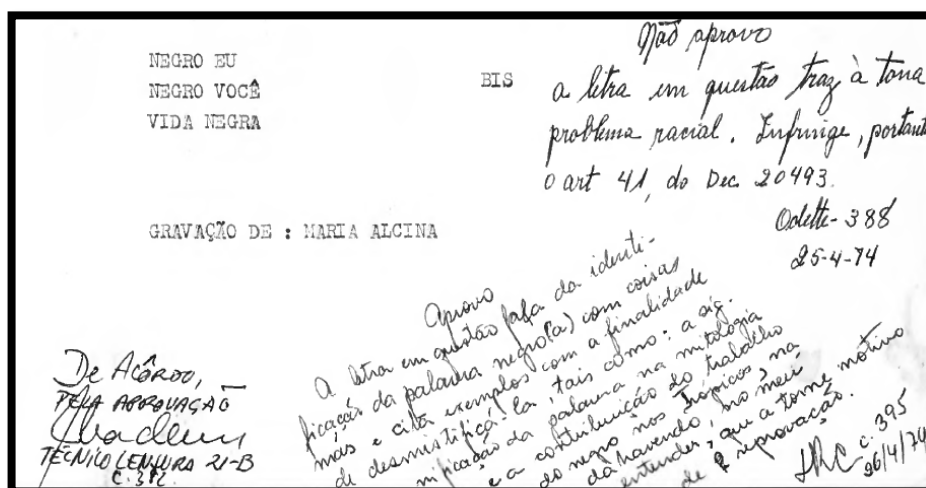 NEGRO EU
NEGRO VOCÊ
VIDA NEGRA
BIS
GRAVAÇÃO DE : MARIA ALCINA
Não aprovo
a letra em questão traz à tona
problema racial. Infringe, portanto
o art 41, do Dec. 20493.
Odette- 388
25-4-74
Aprovo
A letra em questão fala da identi-
ficação da palavra negro(a) com coisas
más e cita exemplos com a finalidade
de desmistificá-la, tais como: a sig-
nificação da palavra na mitologia
e a contribuição do trabalho
do negro nos trópicos, na
da havendo, no meu
entender, que a torne motivo
de reprovação.
c. 395
26/4/74
De Acôrdo,
PELA APROVAÇÃO
TÉCNICO CENSURA 21-B
C. 382